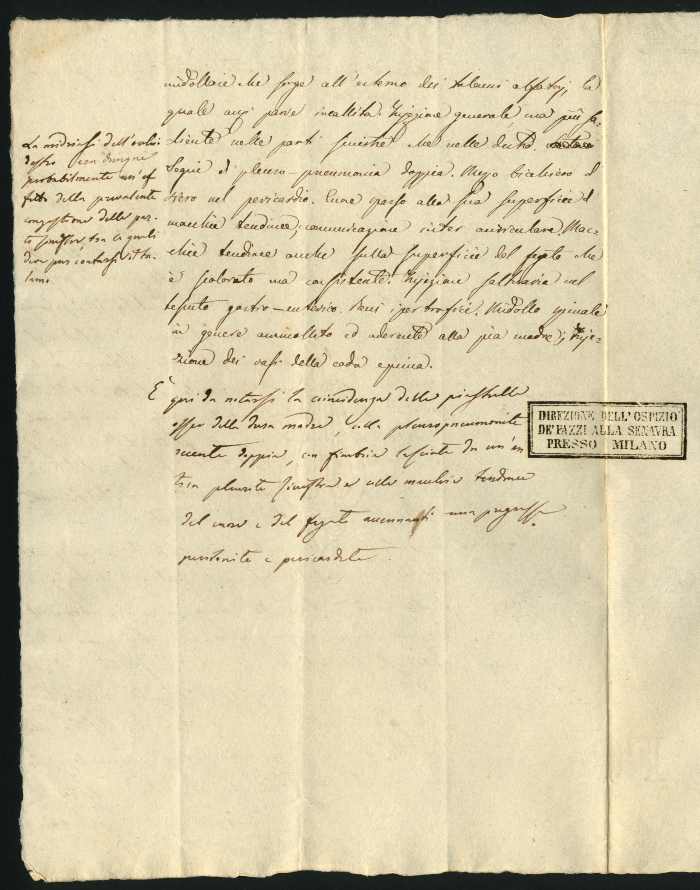 midollare che sorge all'esterno dei talami la
quale anzi parve incallita. Injezione generale ma più sa-
liente nelle parti sinistre che nelle destre.
Segni di pleuro-pneumonia doppia. Mezzo bicchiere di
siero nel pericardio. sparso alla sua superficie di
macchie tendinee, comunicazione inter auricolare. Mac-
chie tendinee anche sulla superficie del fegato che
è scolorato ma consistente. Injezione nel
tessuto gastro-enterico. Reni ipertrofici. Midollo spinale
in genere ammollito ed aderente alla pia madre; Inje-
zione dei vasi della coda equina.
È qui da notarsi la coincidenza delle piastrelle
ossee della dura madre, colla pleuropneumonite
recente doppia, con lasciate da un'an
tica pleurite sinistra e colle macchie tendinee
del cuore e del fegato accennanti una pregressa
peritonite e pericardite.
La midriasi dell'occhio
destro
probabilmente un'ef
fetto della prevalente
congestione delle par-
ti sinistre, tra le quali
deve pur contarsi il ta-
lamo.
DIREZIONE DELL'OSPIZIO
DE'PAZZI ALLA SENAVRA
PRESSO MILANO